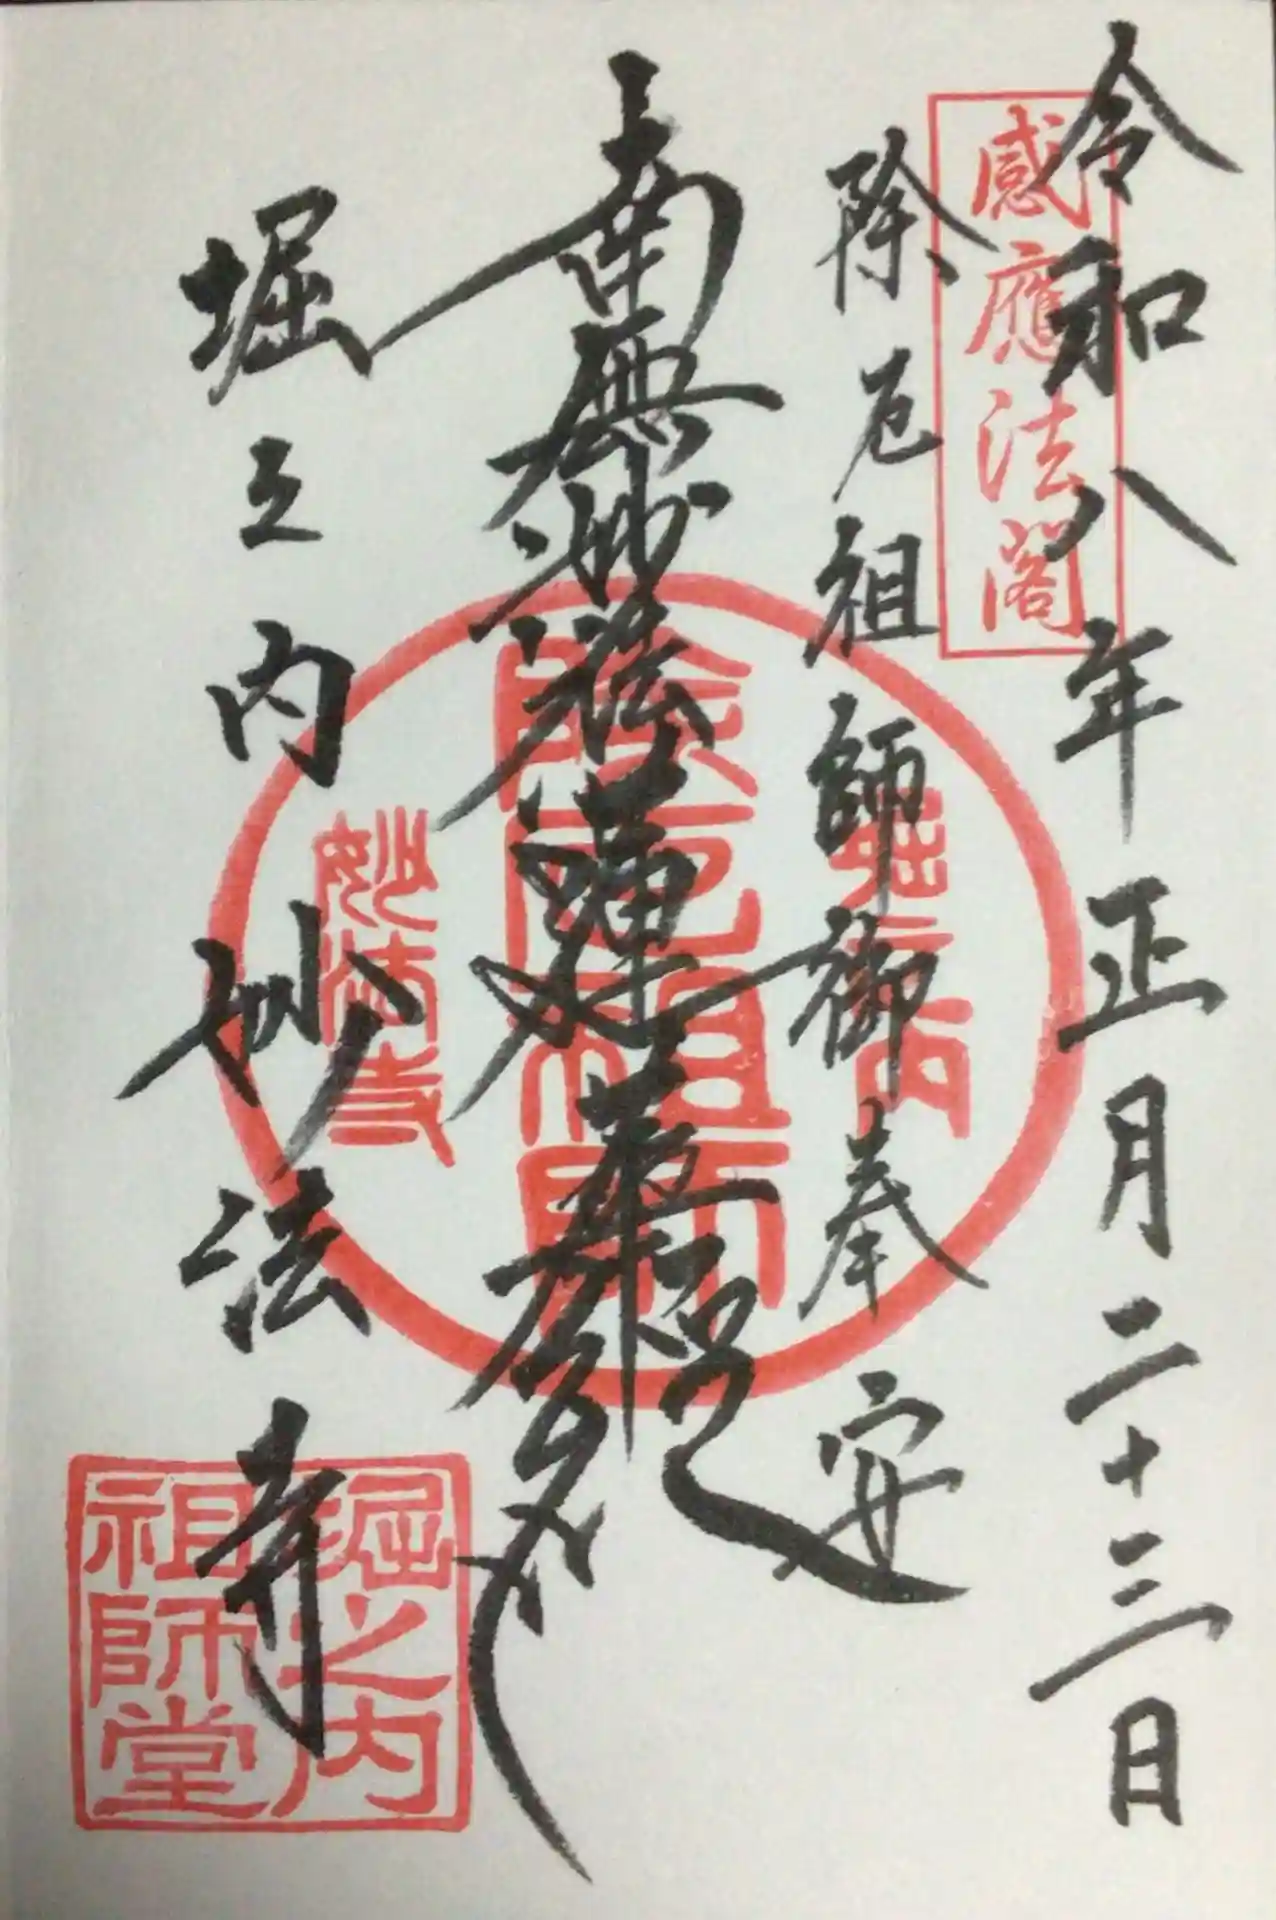 令和八年正月二十三日
感應法閣
除厄祖師御奉安
南無妙法蓮華経
堀之内妙法寺
堀之内
除厄祖師
妙法寺
堀之内
祖師堂